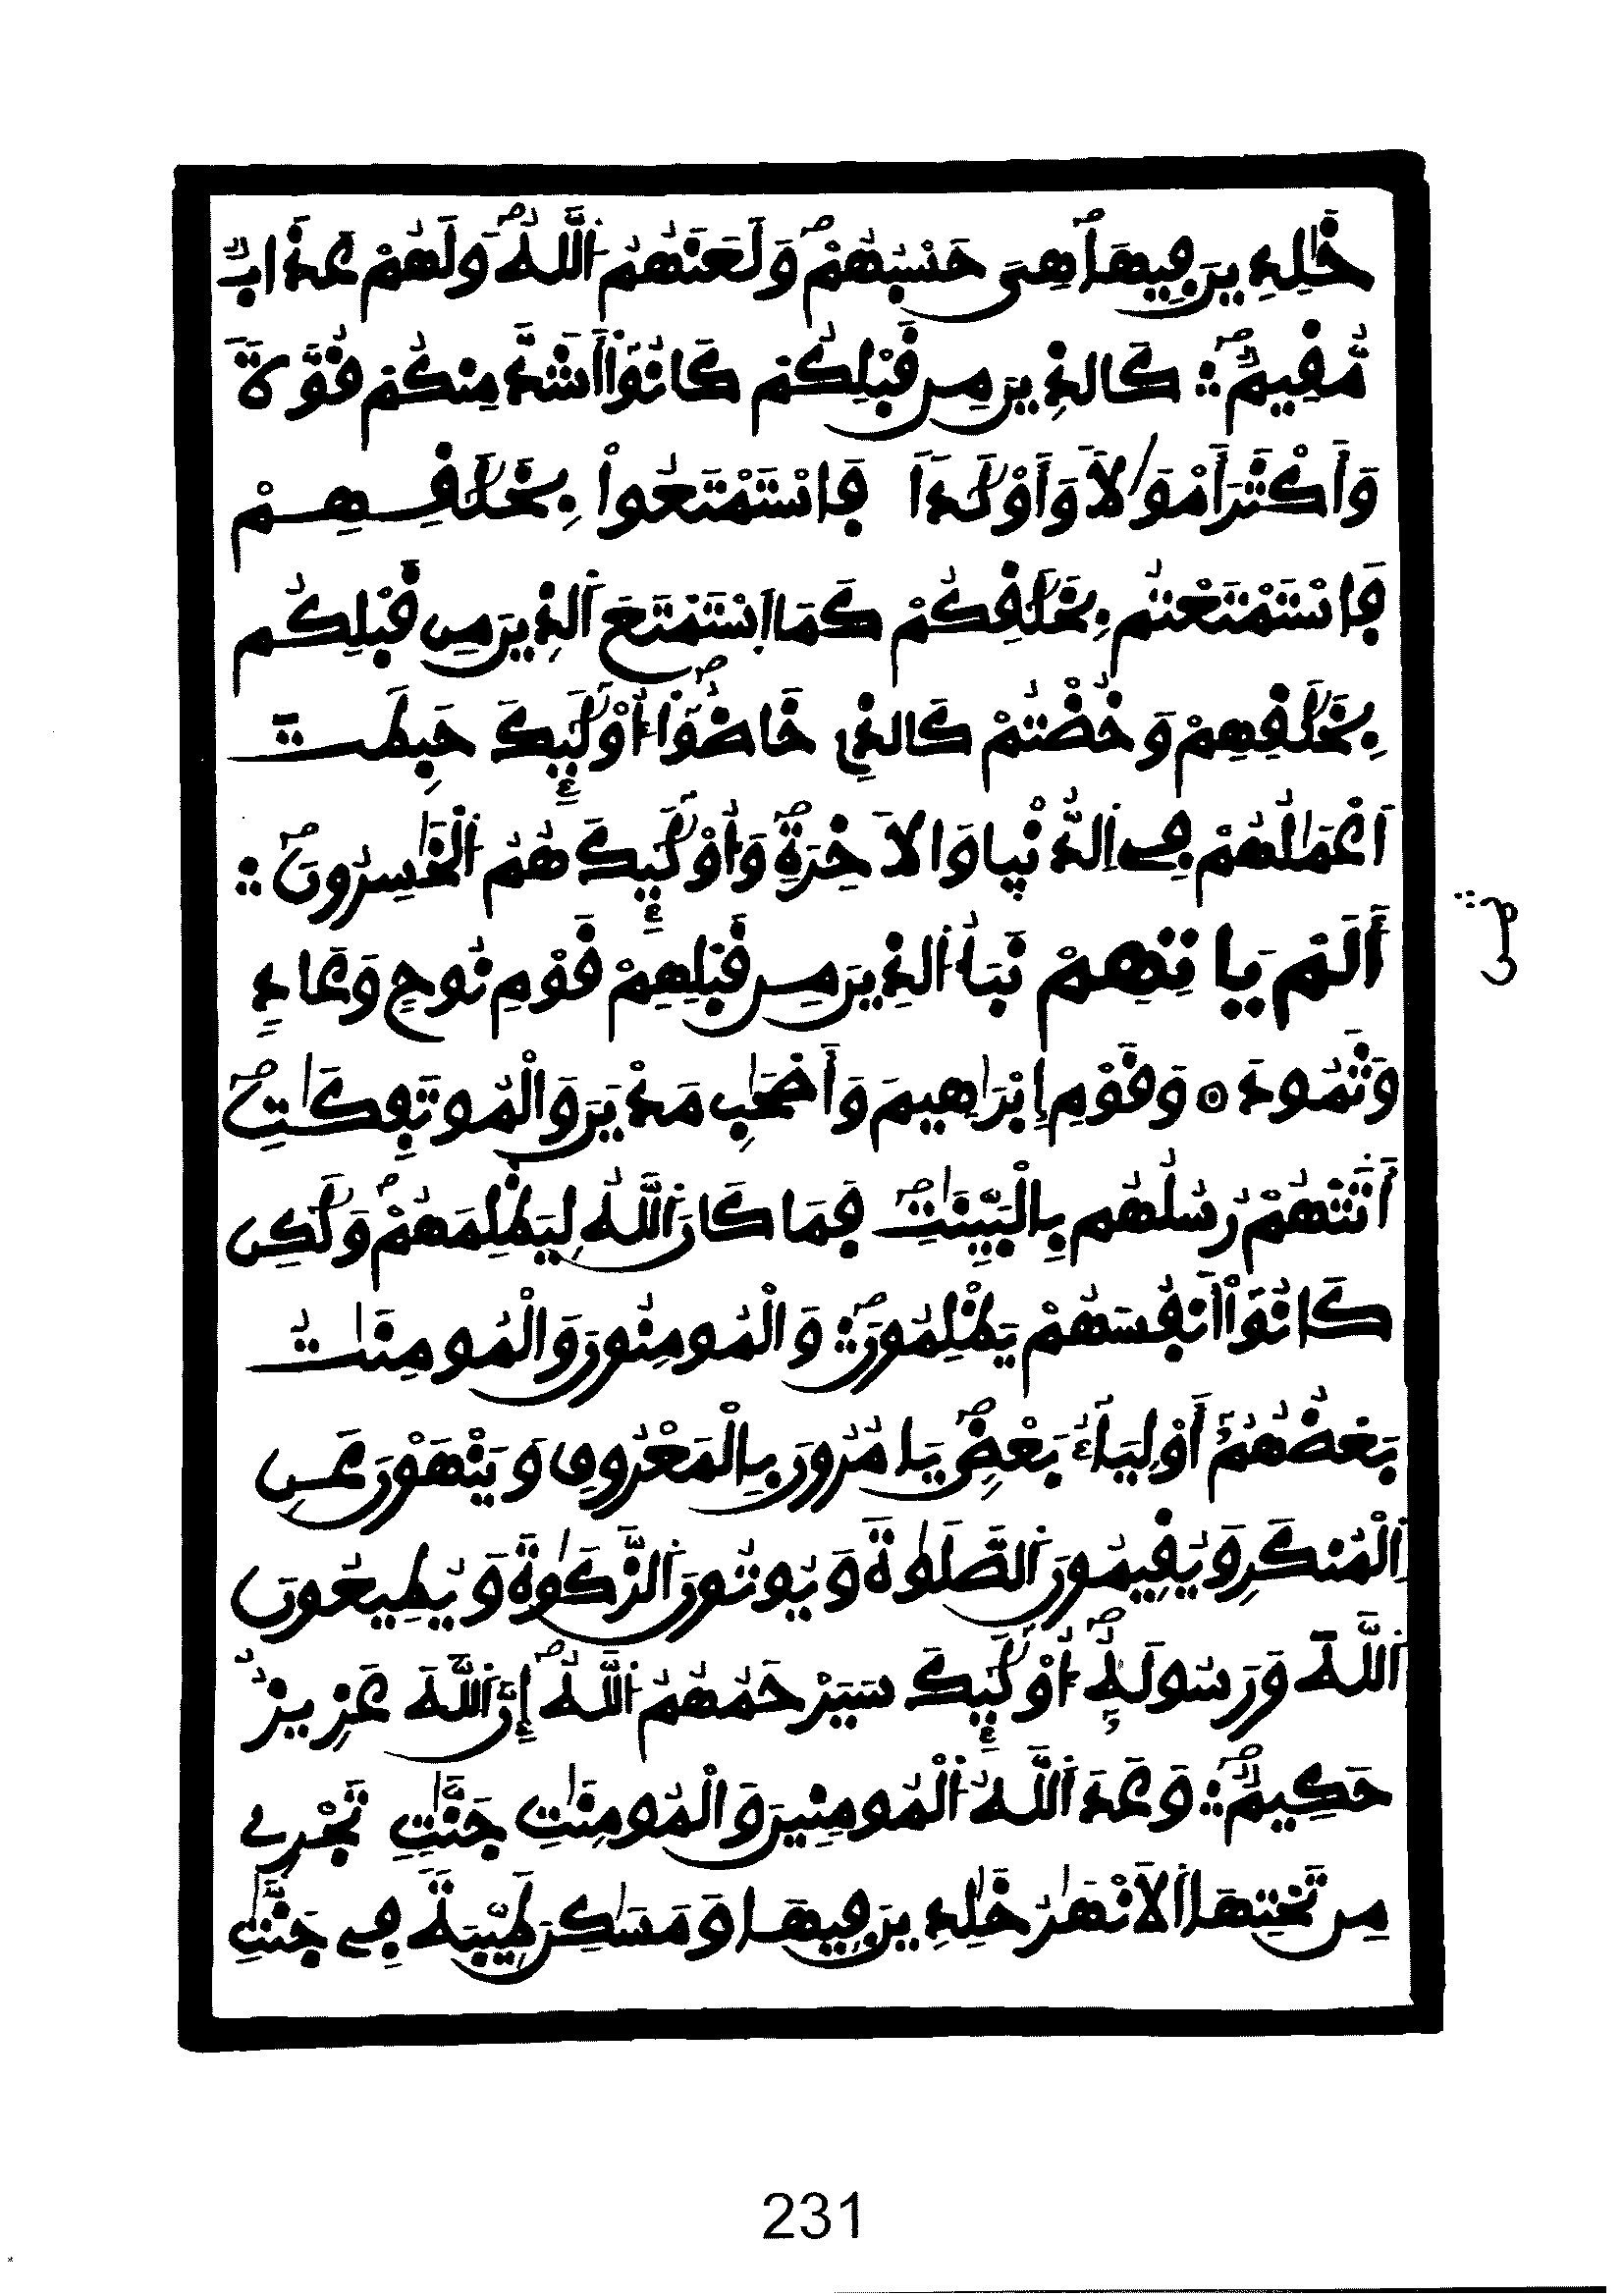 خَٰلِدِينَ فِيهَا هِيَ حَسْبُهُمْ وَلَعَنَهُمُ اَللَّهُ وَلَهُمْ عَذَابٌ
مُّقِيمٌ ۞ كَالذِينَ مِن قَبْلِكُمْ كَانُوٓاْ أَشَدَّ مِنكُمْ قُوَّةً
وَأَكْثَرَ أَمْوَٰلاً وَأَوْلَٰداً فَاسْتَمْتَعُواْ بِخَلَٰقِهِمْ
فَاسْتَمْتَعْتُم بِخَلَٰقِكُمْ كَمَا اَسْتَمْتَعَ اَلذِينَ مِن قَبْلِكُم
بِخَلَٰقِهِمْ وَخُضْتُمْ كَالذِي خَاضُوٓاْ أُوْلَٰٓئِكَ حَبِطَتَ
اَعْمَٰلُهُمْ فِے اِلدُّنْيا وَالاَخِرَةِ وَأُوْلَٰٓئِكَ هُمُ اُلْخَٰسِرُونَ ۞
أَلَمْ يَاتِهِمْ نَبَأُ اُلذِينَ مِن قَبْلِهِمْ قَوْمِ نُوحٍ وَعَادٍ
وَثَمُودَ ۝ وَقَوْمِ إِبْرَٰهِيمَ وَأَصْحَٰبِ مَدْيَنَ وَالْمُوتَفِكَٰتِ
أَتَتْهُمْ رُسُلُهُم بِالْبَيِّنَٰتِ فَمَا كَانَ اَللَّهُ لِيَظْلِمَهُمْ وَلَٰكِن
كَانُوٓاْ أَنفُسَهُمْ يَظْلِمُونَ ۞ وَالْمُومِنُونَ وَالْمُومِنَٰتُ
بَعْضُهُمُۥٓ أَوْلِيَآءُ بَعْضٍ يَامُرُونَ بِالْمَعْرُوفِ وَيَنْهَوْنَ عَنِ
اِلْمُنكَرِ وَيُقِيمُونَ اَلصَّلَوٰةَ وَيُوتُونَ اَلزَّكَوٰةَ وَيُطِيعُونَ
اَللَّهَ وَرَسُولَهُۥٓ أُوْلَٰٓئِكَ سَيَرْحَمُهُمُ اُللَّهُ إِنَّ اَللَّهَ عَزِيزٌ
حَكِيمٌ ۞ وَعَدَ اَللَّهُ اُلْمُومِنِينَ وَالْمُومِنَٰتِ جَنَّٰتٍ تَجْرِے
مِن تَحْتِهَا اَلاَنْهَٰرُ خَٰلِدِينَ فِيهَا وَمَسَٰكِنَ طَيِّبَةً فِے جَنَّٰتِ
231